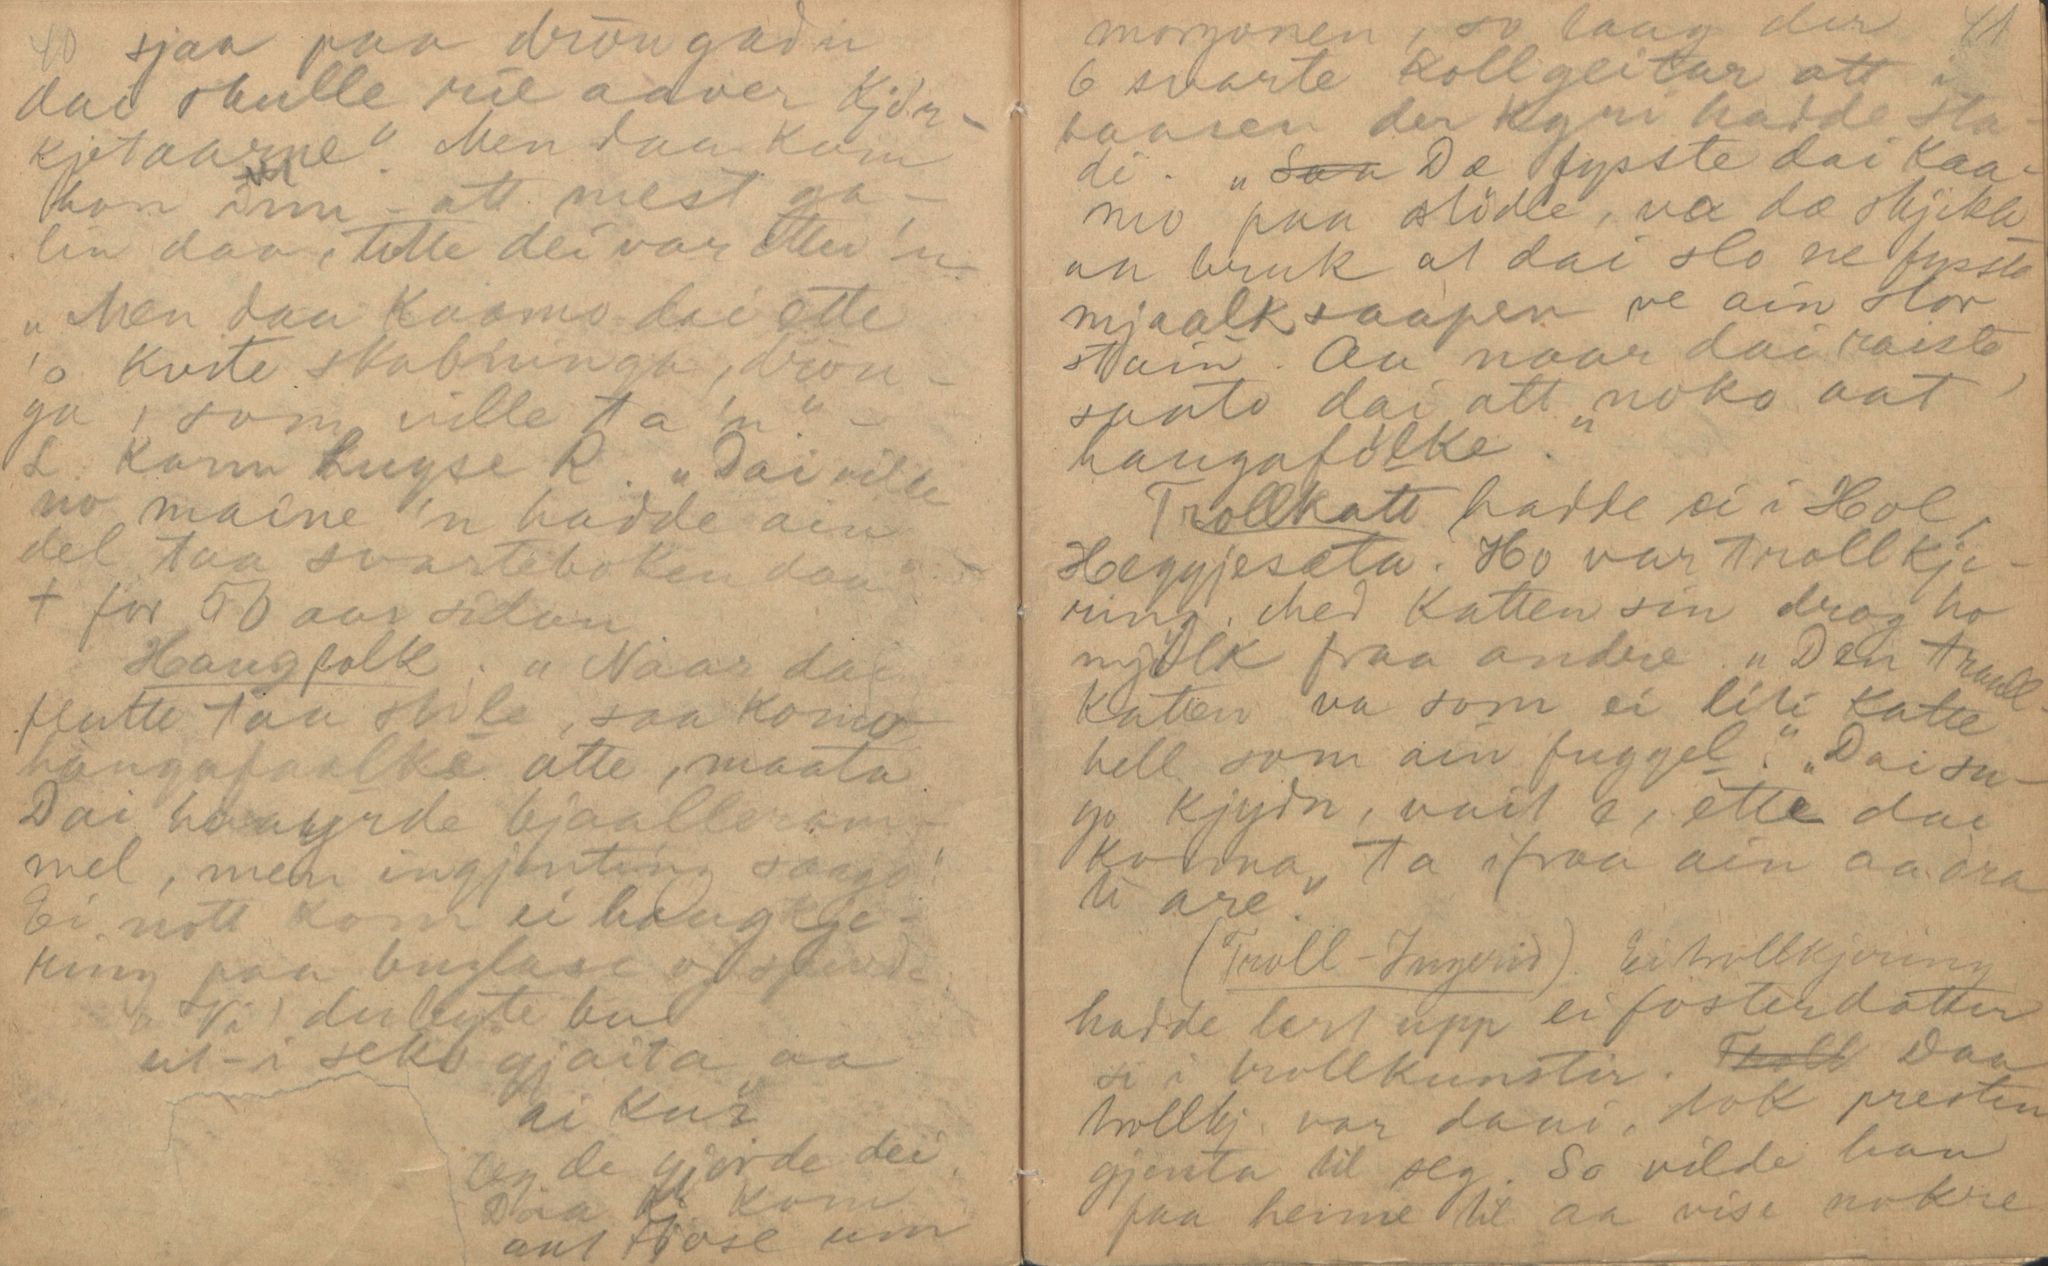 40 sjaa paa dröngadn
dai skulle rie aaver Kjör-
kjetaarne". Men daa kom
hon inn att mest ga-
lin daa, totte dei var etter 'n.
"Men daa kaamo dai ette
'o kvite stabninga, drön-
ga, som ville ta 'n" -
L. kann hugse R. "Dai ville
no maine 'n hadde ain
del taa svarteboken daa" -
† for 50 aar sidan
Haugfolk. "Naar dai
flutte taa støle, saa komo
haugafaalke atte, maata
Dai haayrde bjaalleram-
mel, men ingjenting saago"
Ei nott kom ei haugkje-
ring paa buglase og spurde
"Vil du byte bu
ut i seks gjaita aa
ai ku?"
Og de gjorde dei.
Daa kom
aut fjose um
morgonen, so laag der 41
6 svarte kollgeitar att i
baasen der kyri hadde sta-
di. "Saa Dæ fysste dai kaa-
mo paa stödle, va dæ skjikk
aa bruk at dai slo ne fyssta
mjaalksaapen ve ain stor
stain. Aa naar dai raiste,
saato dai att noko aat
haugafolke."
Trollkatt hadde ei i Hol,
Heggjeseta. Ho var trollkje-
ring. Med katten sin drog ho
mjölk fraa andre. "Den traull-
katten va som ei liti katte
hell som ain fuggel". "Dai su-
go kjydn, vait e, ette dai
kunna ta ifraa ain aadra
ti are".
(Troll-Ingerid) Ei trollkjering
hadde lert upp ei fosterdotter
si i trollkunstir. Troll Daa
trollkj. var daui, tok presten
gjenta til seg. So vilde han
faa heime til aa vise nokre